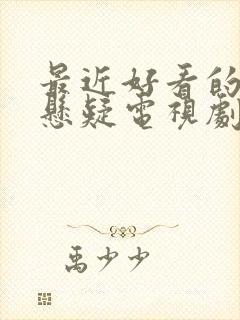 最近好看的
懸疑電視劇
禹少少